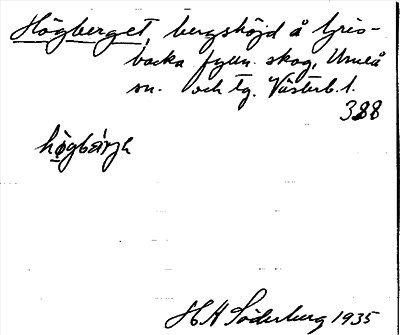 Högberget, bergshöjd å Gris-
backa fylln. skog, Umeå
sn. och tg. Västerb. l.
388
högbärjʜ
H H Söderberg 1935